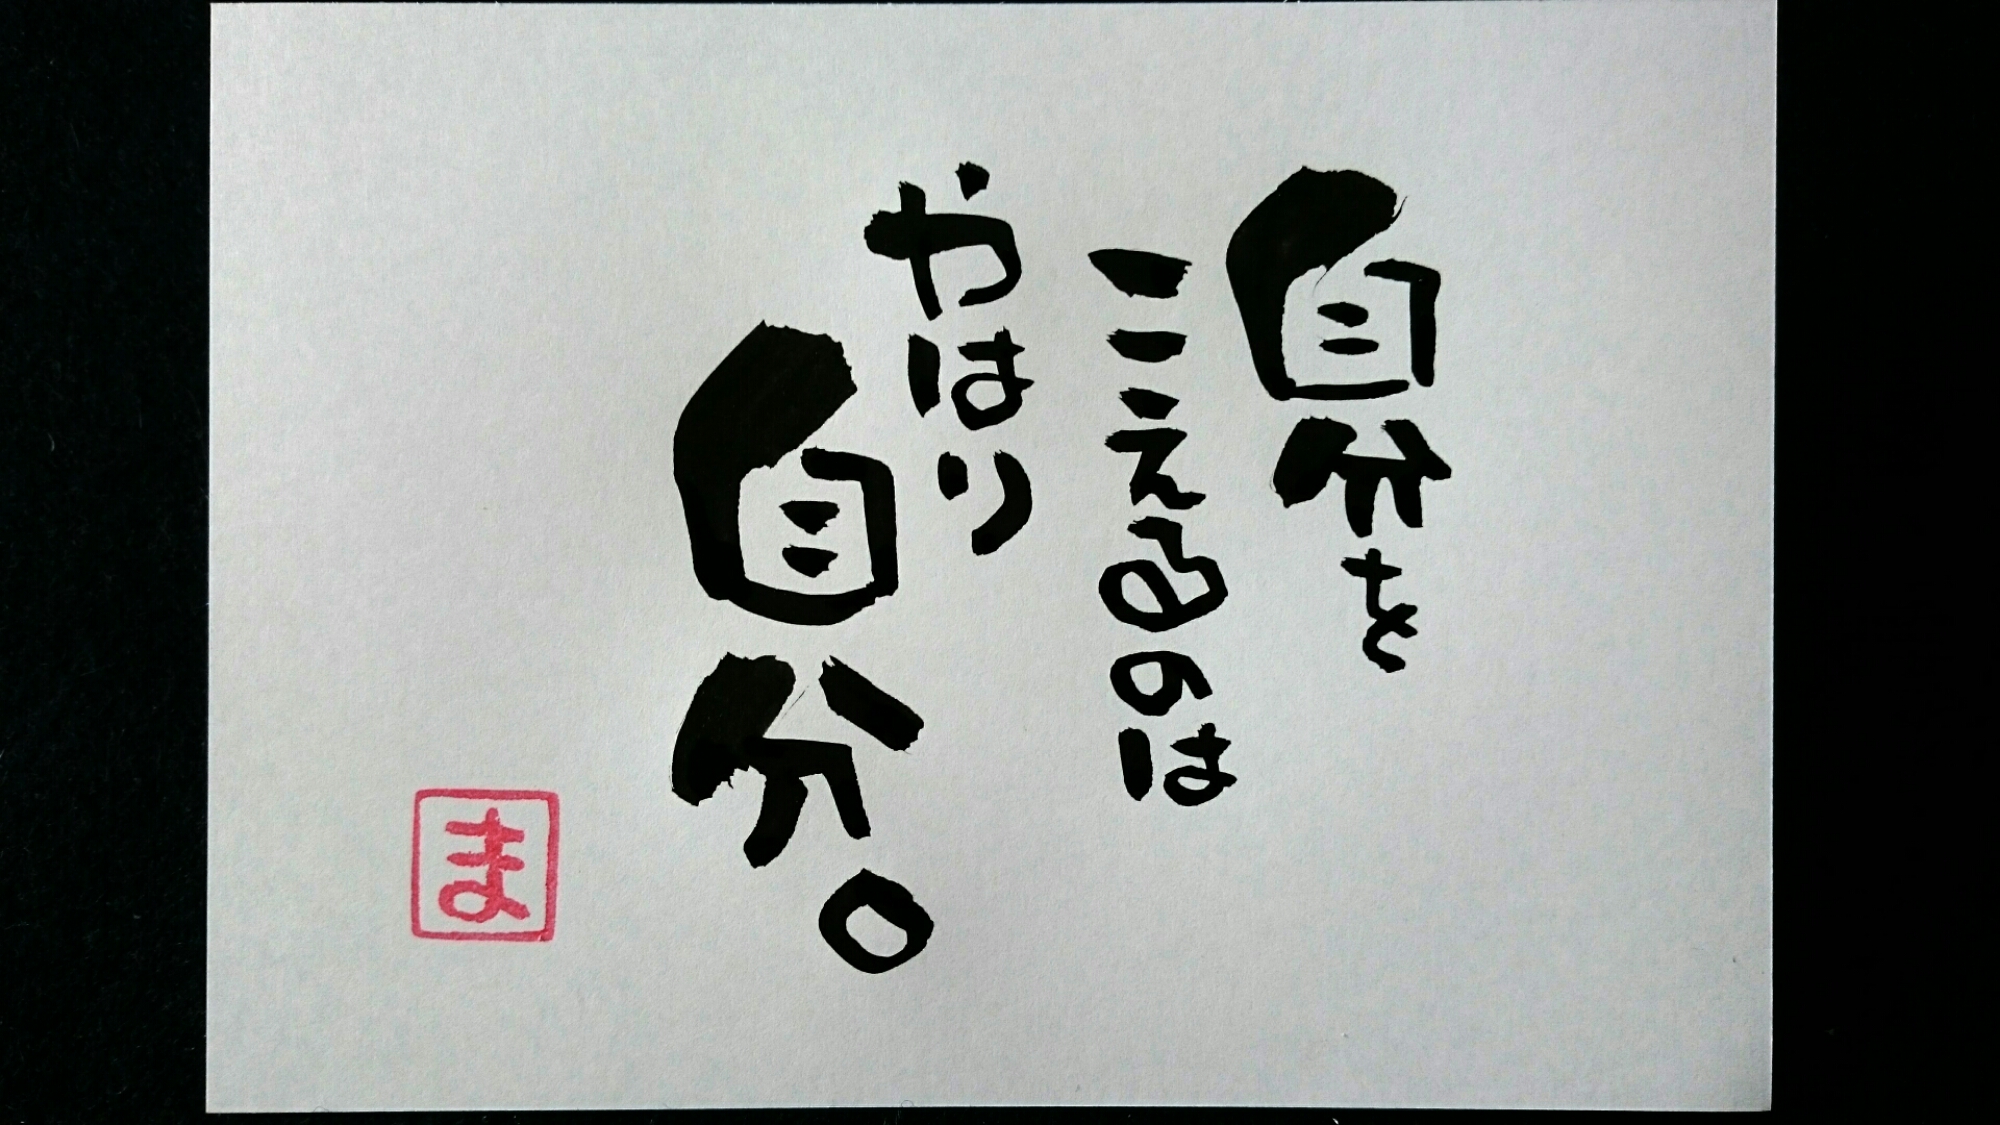 自分を
こえるのは
やはり
自分。
ま